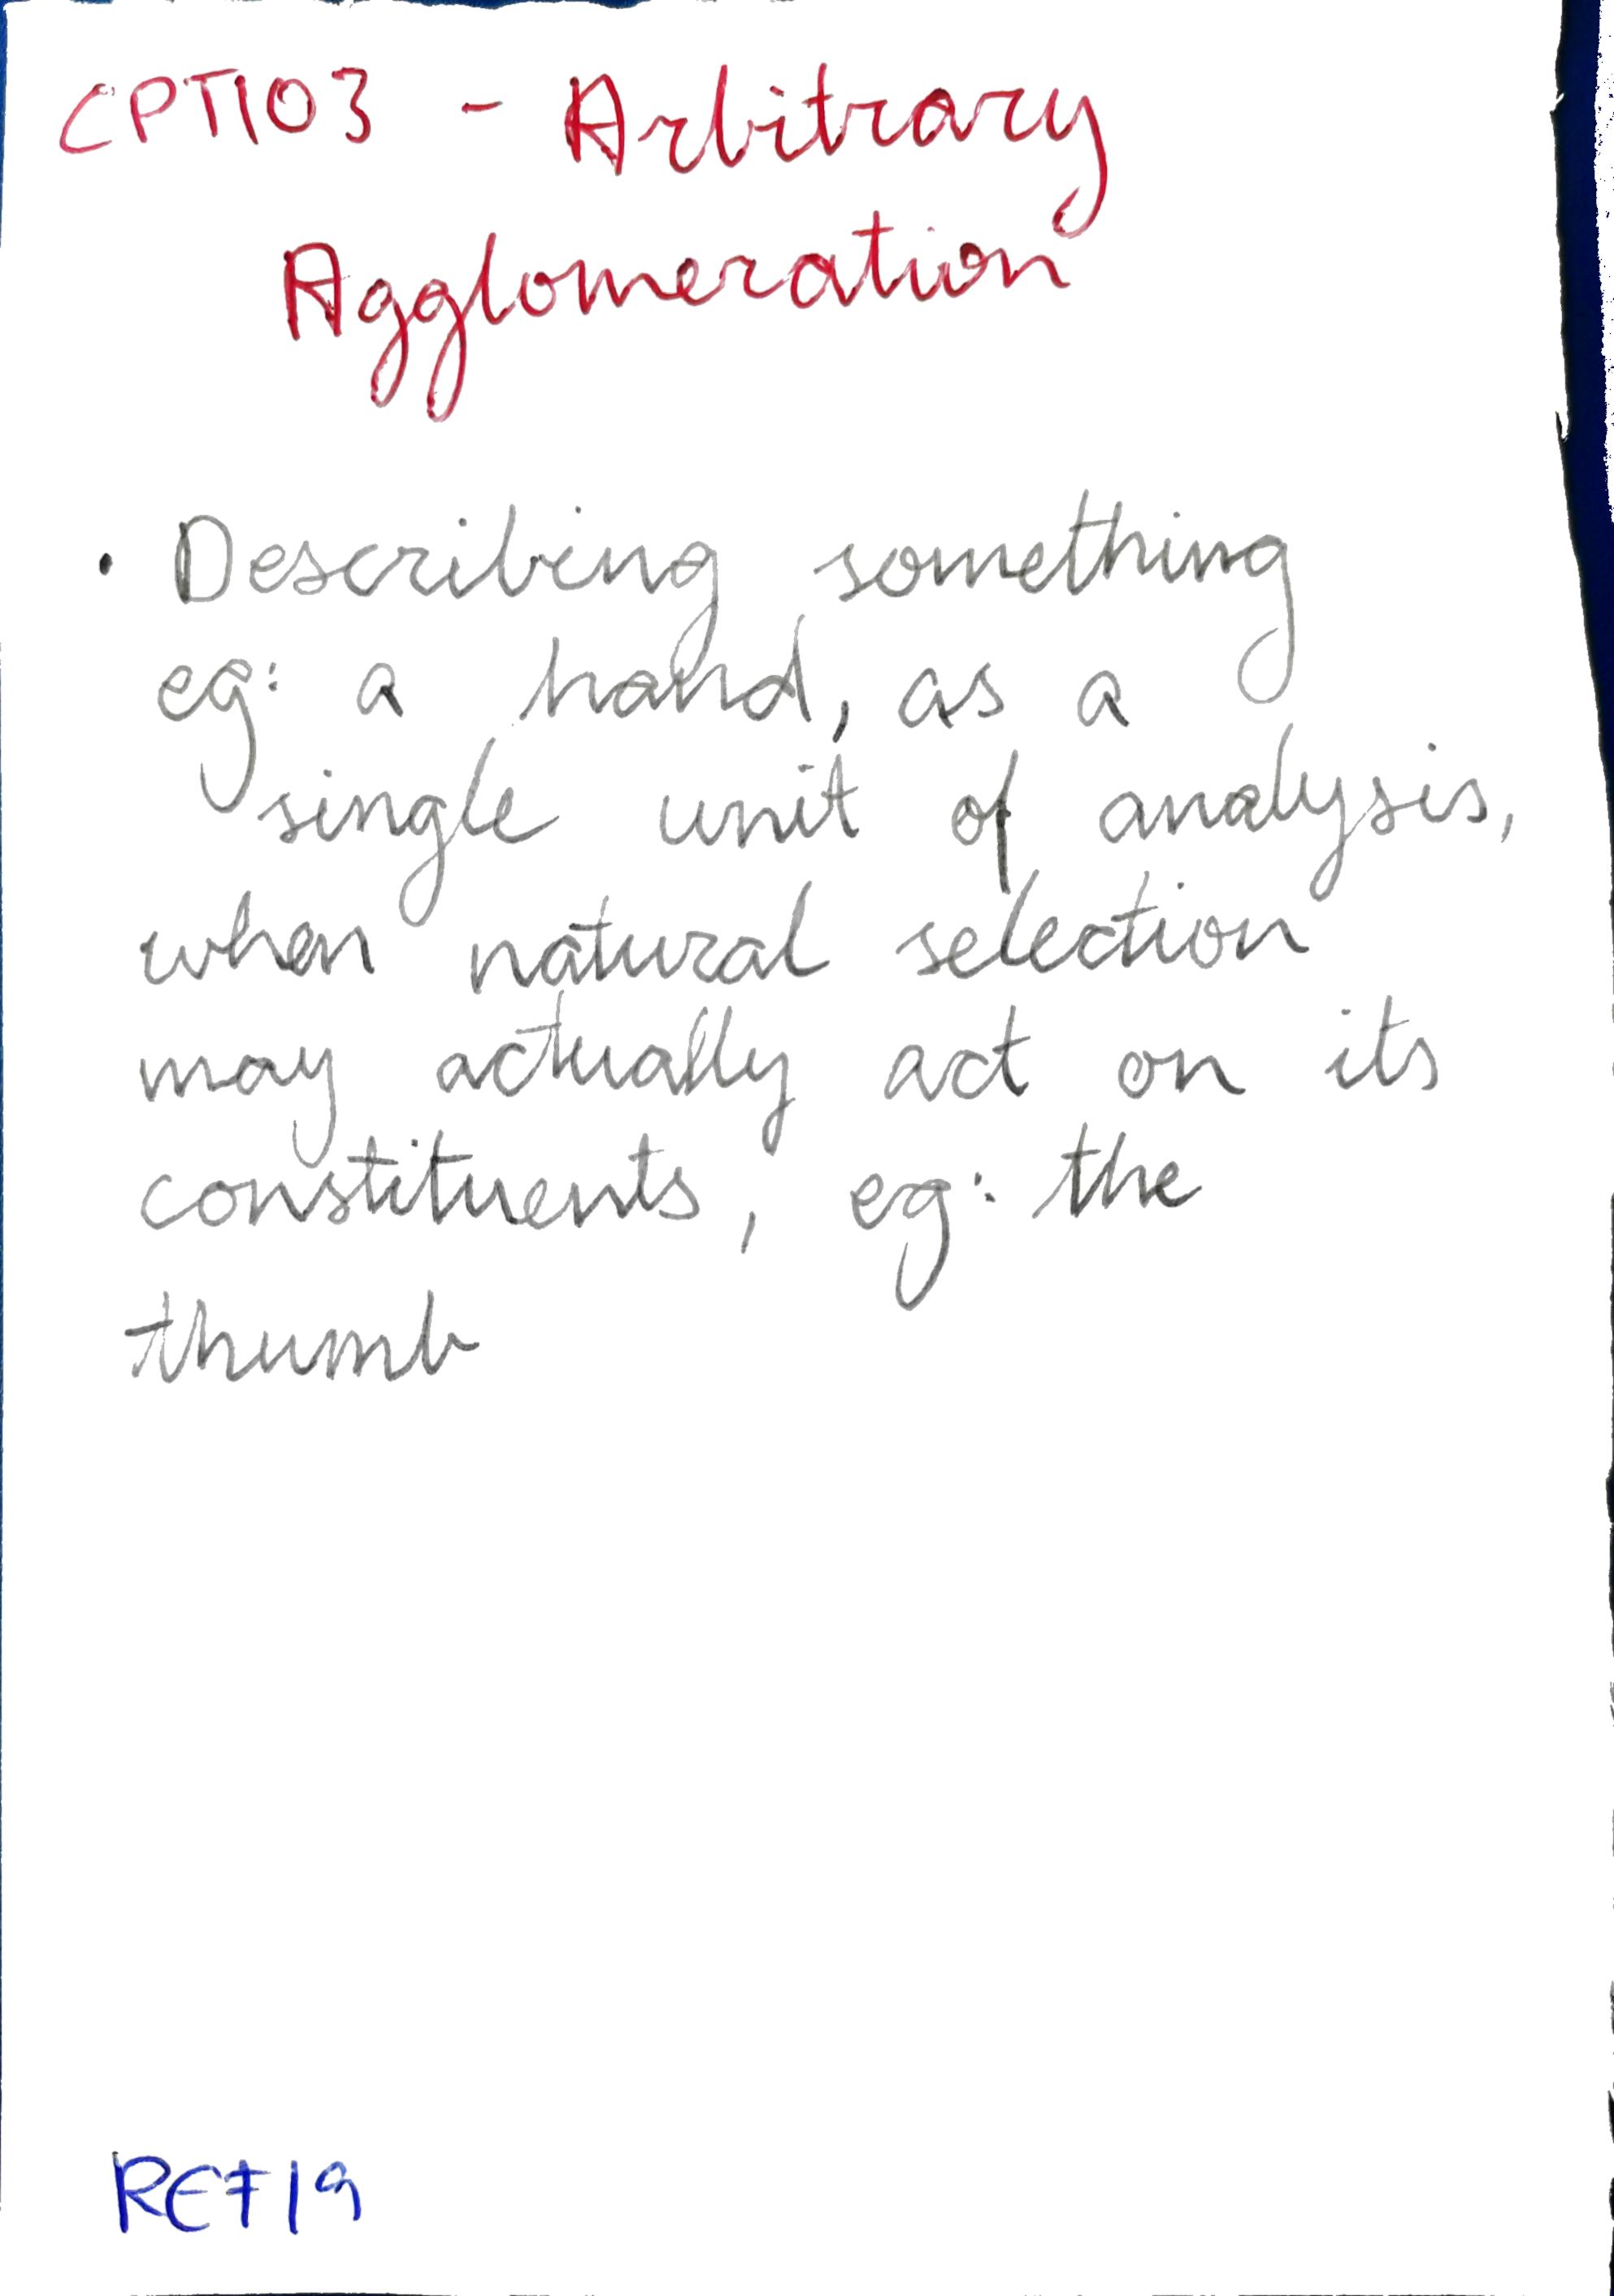 CPT103 - Arbitrary
Agglomeration
• Describing something
eg: a hand, as a
single unit of analysis,
when natural selection
may actually act on its
constituents, eg: the
thumb
REF19